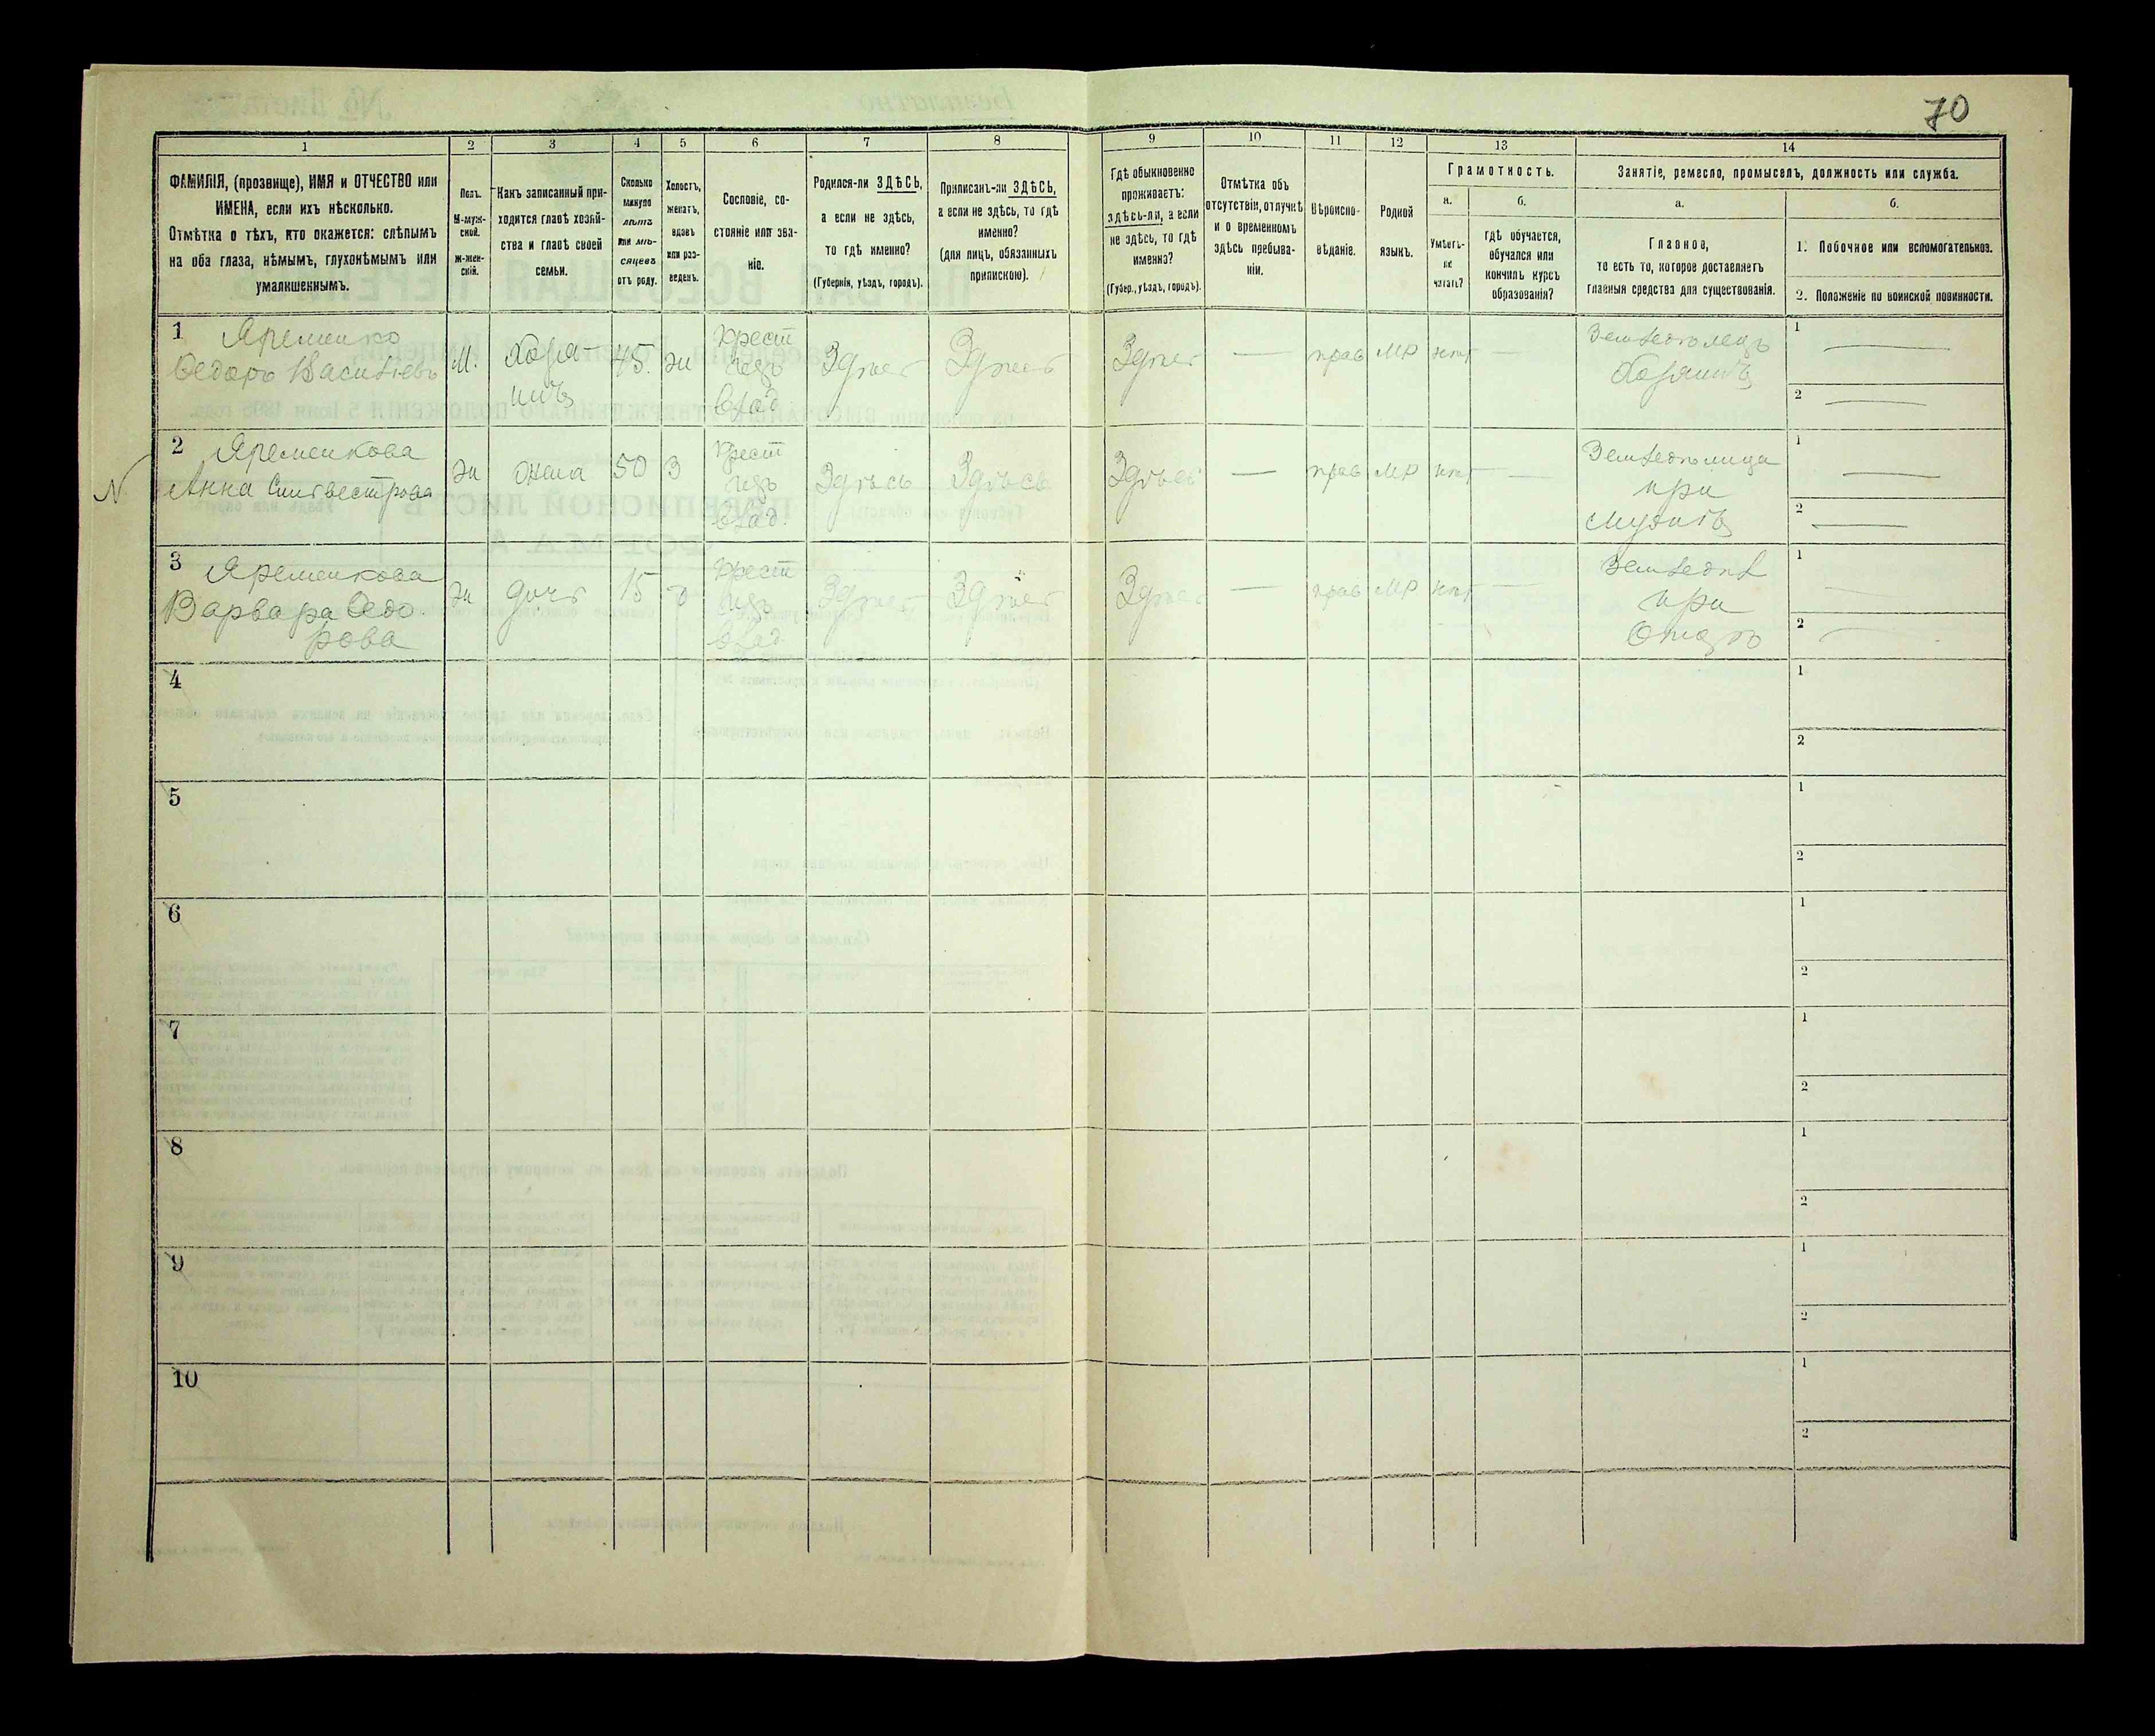 70
1
2
3
4
5
6
7
8
9
10
11
12
13
14
ФАМИЛІЯ, (прозвище), ИМЯ и ОТЧЕСТВО или
ИМЕНА, если ихъ нѣсколько.
Отмѣтка о тѣхъ, кто окажется: слѣпымъ
на оба глаза, нѣмымъ, глухонѣмымъ или
умалишеннымъ.
Полъ.
М-муж-
ской.
Ж-жен-
скій.
Какъ записанный при-
ходится главѣ хозяй-
ства и главѣ своей
семьи.
Сколько
минуло
лѣтъ
или мѣ-
сяцевъ
отъ роду.
Холостъ,
женатъ,
вдовъ
или раз-
веденъ.
Сословіе, со-
стояніе или зва-
ніе.
Родился-ли ЗДѢСЬ,
а если не здѣсь,
то гдѣ именно?
(Губернія, уѣздъ, городъ).
Приписанъ-ли ЗДѢСЬ,
а если не здѣсь, то гдѣ
именно?
(для лицъ, обязанныхъ
припискою).
Гдѣ обыкновенно
проживаетъ:
здѣсь-ли, а если
не здѣсь, то гдѣ
именно?
(Губер., уѣздъ, городъ).
Отмѣтка объ
отсутствіи, отлучкѣ
и о временномъ
здѣсь пребыва-
ніи.
Вѣроиспо-
вѣданіе.
Родной
языкъ.
Грамотность.
а.
Умѣетъ-
ли
читать?
б.
гдѣ обучается,
обучался или
кончилъ курсъ
образованія?
Занятіе, ремесло, промыселъ, должность или служба.
а.
Главное,
то есть то, которое доставляетъ
главныя средства для существованія.
б.
1. Побочное или вспомогательное.
2. Положеніе по воинской повинности.
1 Яременко
Ѳедоръ Васильевъ
М.
Хозя-
инъ
45.
ж
Крест
изъ
влад
Здѣсь
Здѣсь
Здѣсь
—
прав
МР
нѣт
—
Земледѣлецъ
Хозяинъ
1 —
2 —
2 Яременкова
Анна Силвестрова
ж
жена
50
З
Крест
изъ
влад.
Здѣсь
Здѣсь
Здѣсь
—
прав
МР
нѣт
—
Земледѣлица
при
мужѣ
1 —
2 —
3 Яременкова
Варвара Ѳедо
рова
ж
дочь
15
Крест
изъ
влад.
Здѣсь
Здѣсь
Здѣсь
—
прав
МР
нѣт
—
Земледѣл
при
Отцѣ
1 —
2 —
4
1
2
5
1
2
6
1
2
7
1
2
8
1
2
9
1
2
10
1
2